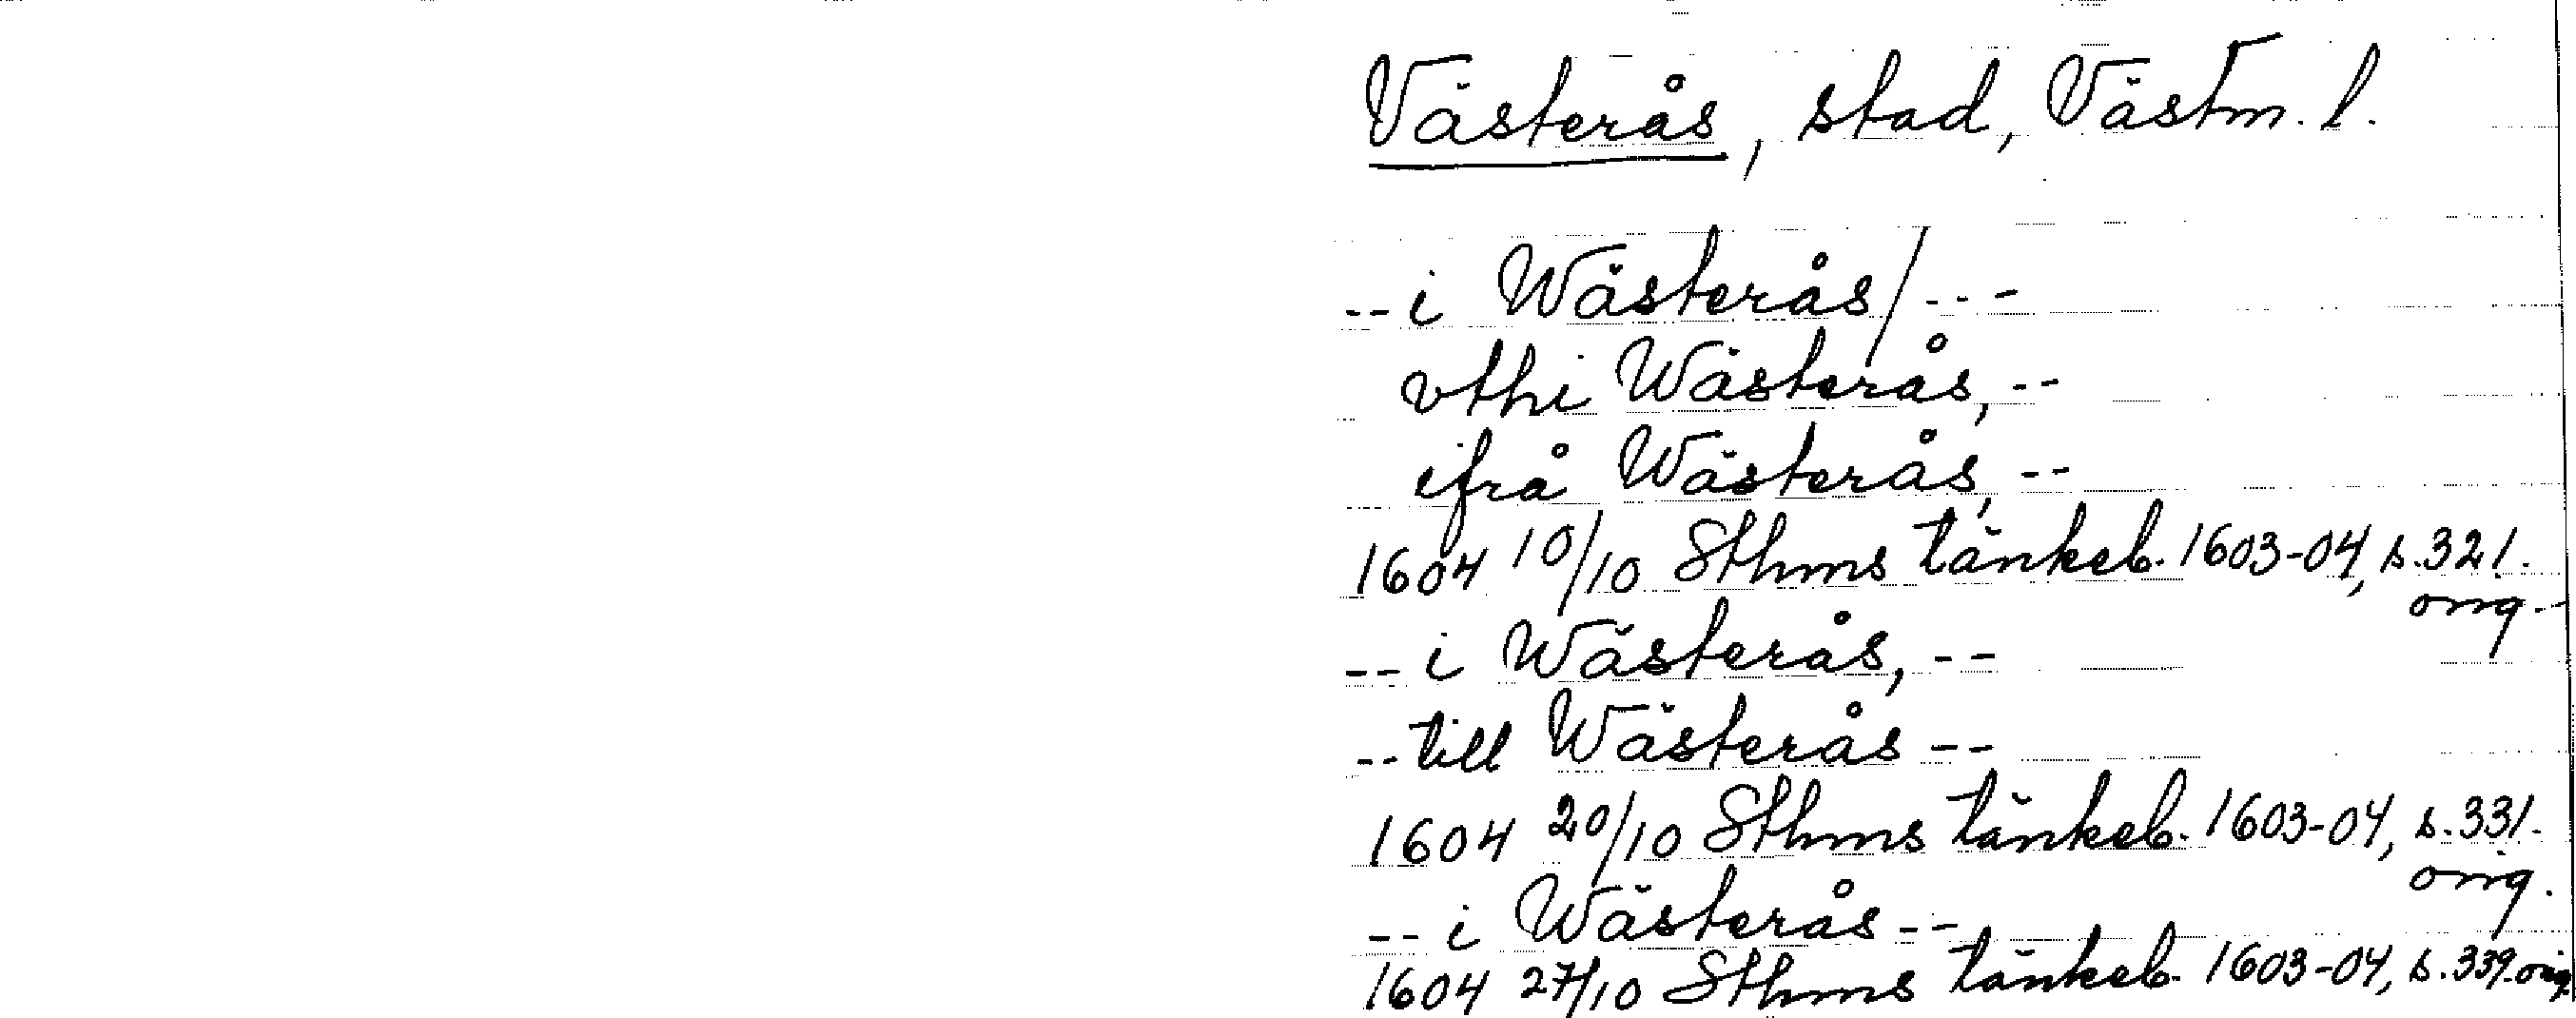 Västerås, stad, Västm. l.
-- i Wästerås/ ---
vthi Wästerås, --
ifrå Wästerås, --
1604 10/10 Sthms tänkeb. 1603-04, s. 321.
orig.
-- i Wästerås, --
-- till Wästerås --
1604 20/10 Sthms tänkeb. 1603-04, s. 331.
orig.
-- i Wästerås --
1604 27/10 Sthms tänkeb. 1603-04, s. 339. orig